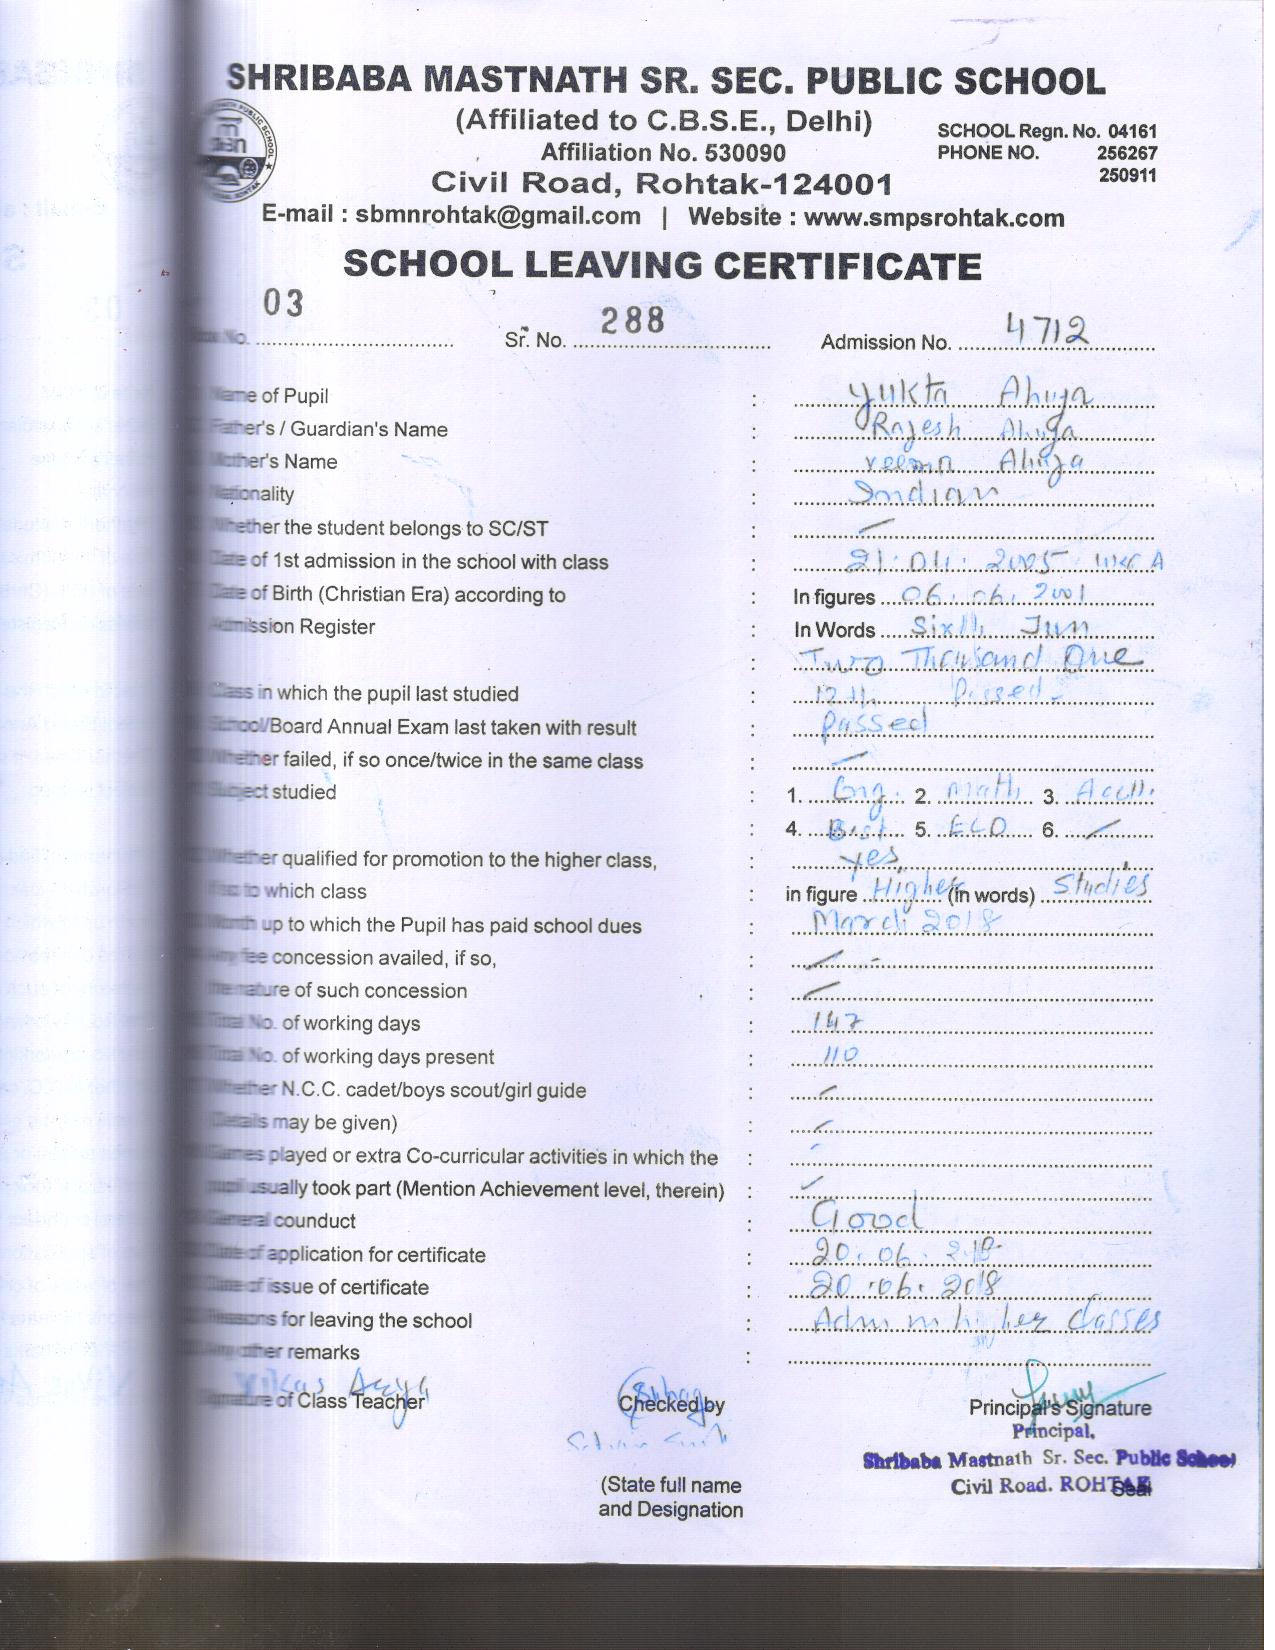 SHRIBABA MASTNATH SR. SEC. PUBLIC SCHOOL
(Affiliated to C.B.S.E., Delhi)
Affiliation No. 530090
SCHOOL Regn. No. 04161
PHONE NO. 256267
250911
Civil Road, Rohtak-124001
E-mail : sbmnrohtak@gmail.com | Website : www.smpsrohtak.com
SCHOOL LEAVING CERTIFICATE
No. 03 Sr. No. 288 Admission No. 4712
Name of Pupil : Yukta Ahuja
Father's / Guardian's Name : Rajesh Ahuja
Mother's Name : Veena Ahuja
Nationality : Indian
Whether the student belongs to SC/ST : —
Date of 1st admission in the school with class : 21.04.2005 UKG A
Date of Birth (Christian Era) according to : In figures 06.06.2001
Admission Register : In Words Sixth Jun
: Two Thousand One
Class in which the pupil last studied : 12th Passed
School/Board Annual Exam last taken with result : Passed
Whether failed, if so once/twice in the same class : —
Subject studied : 1. Eng. 2. Math 3. Acctt.
: 4. B.st 5. ECO 6. —
Whether qualified for promotion to the higher class, : Yes
If so to which class : in figure Higher (in words) Studies
Month up to which the Pupil has paid school dues : March 2018
Any fee concession availed, if so, : —
the nature of such concession : —
Total No. of working days : 147
Total No. of working days present : 110
Whether N.C.C. cadet/boys scout/girl guide : —
(Details may be given) : —
Games played or extra Co-curricular activities in which the :
pupil usually took part (Mention Achievement level, therein) : —
General counduct : Good
Date of application for certificate : 20.06.2018
Date of issue of certificate : 20.06.2018
Reasons for leaving the school : Adm in higher classes
Any other remarks :
Signature of Class Teacher Checked by Principal's Signature
Principal,
Shribaba Mastnath Sr. Sec. Public School
Civil Road. ROHTAK
(State full name
and Designation